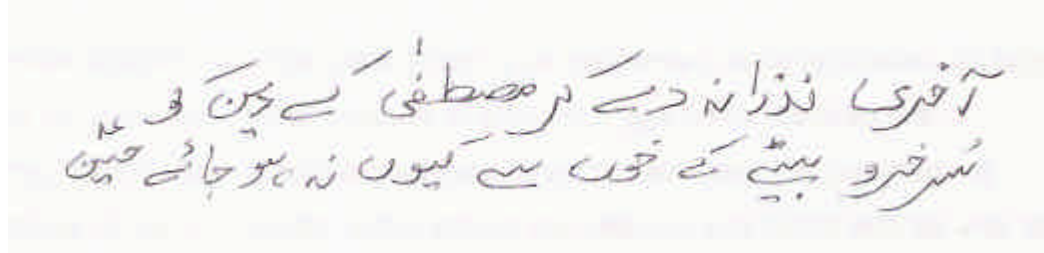 آخری نذرانہ دے کر مصطفٰی کے دین کو
سُرخرو بیٹے کے خوں سے کیوں نہ ہو جائے حسینؑ